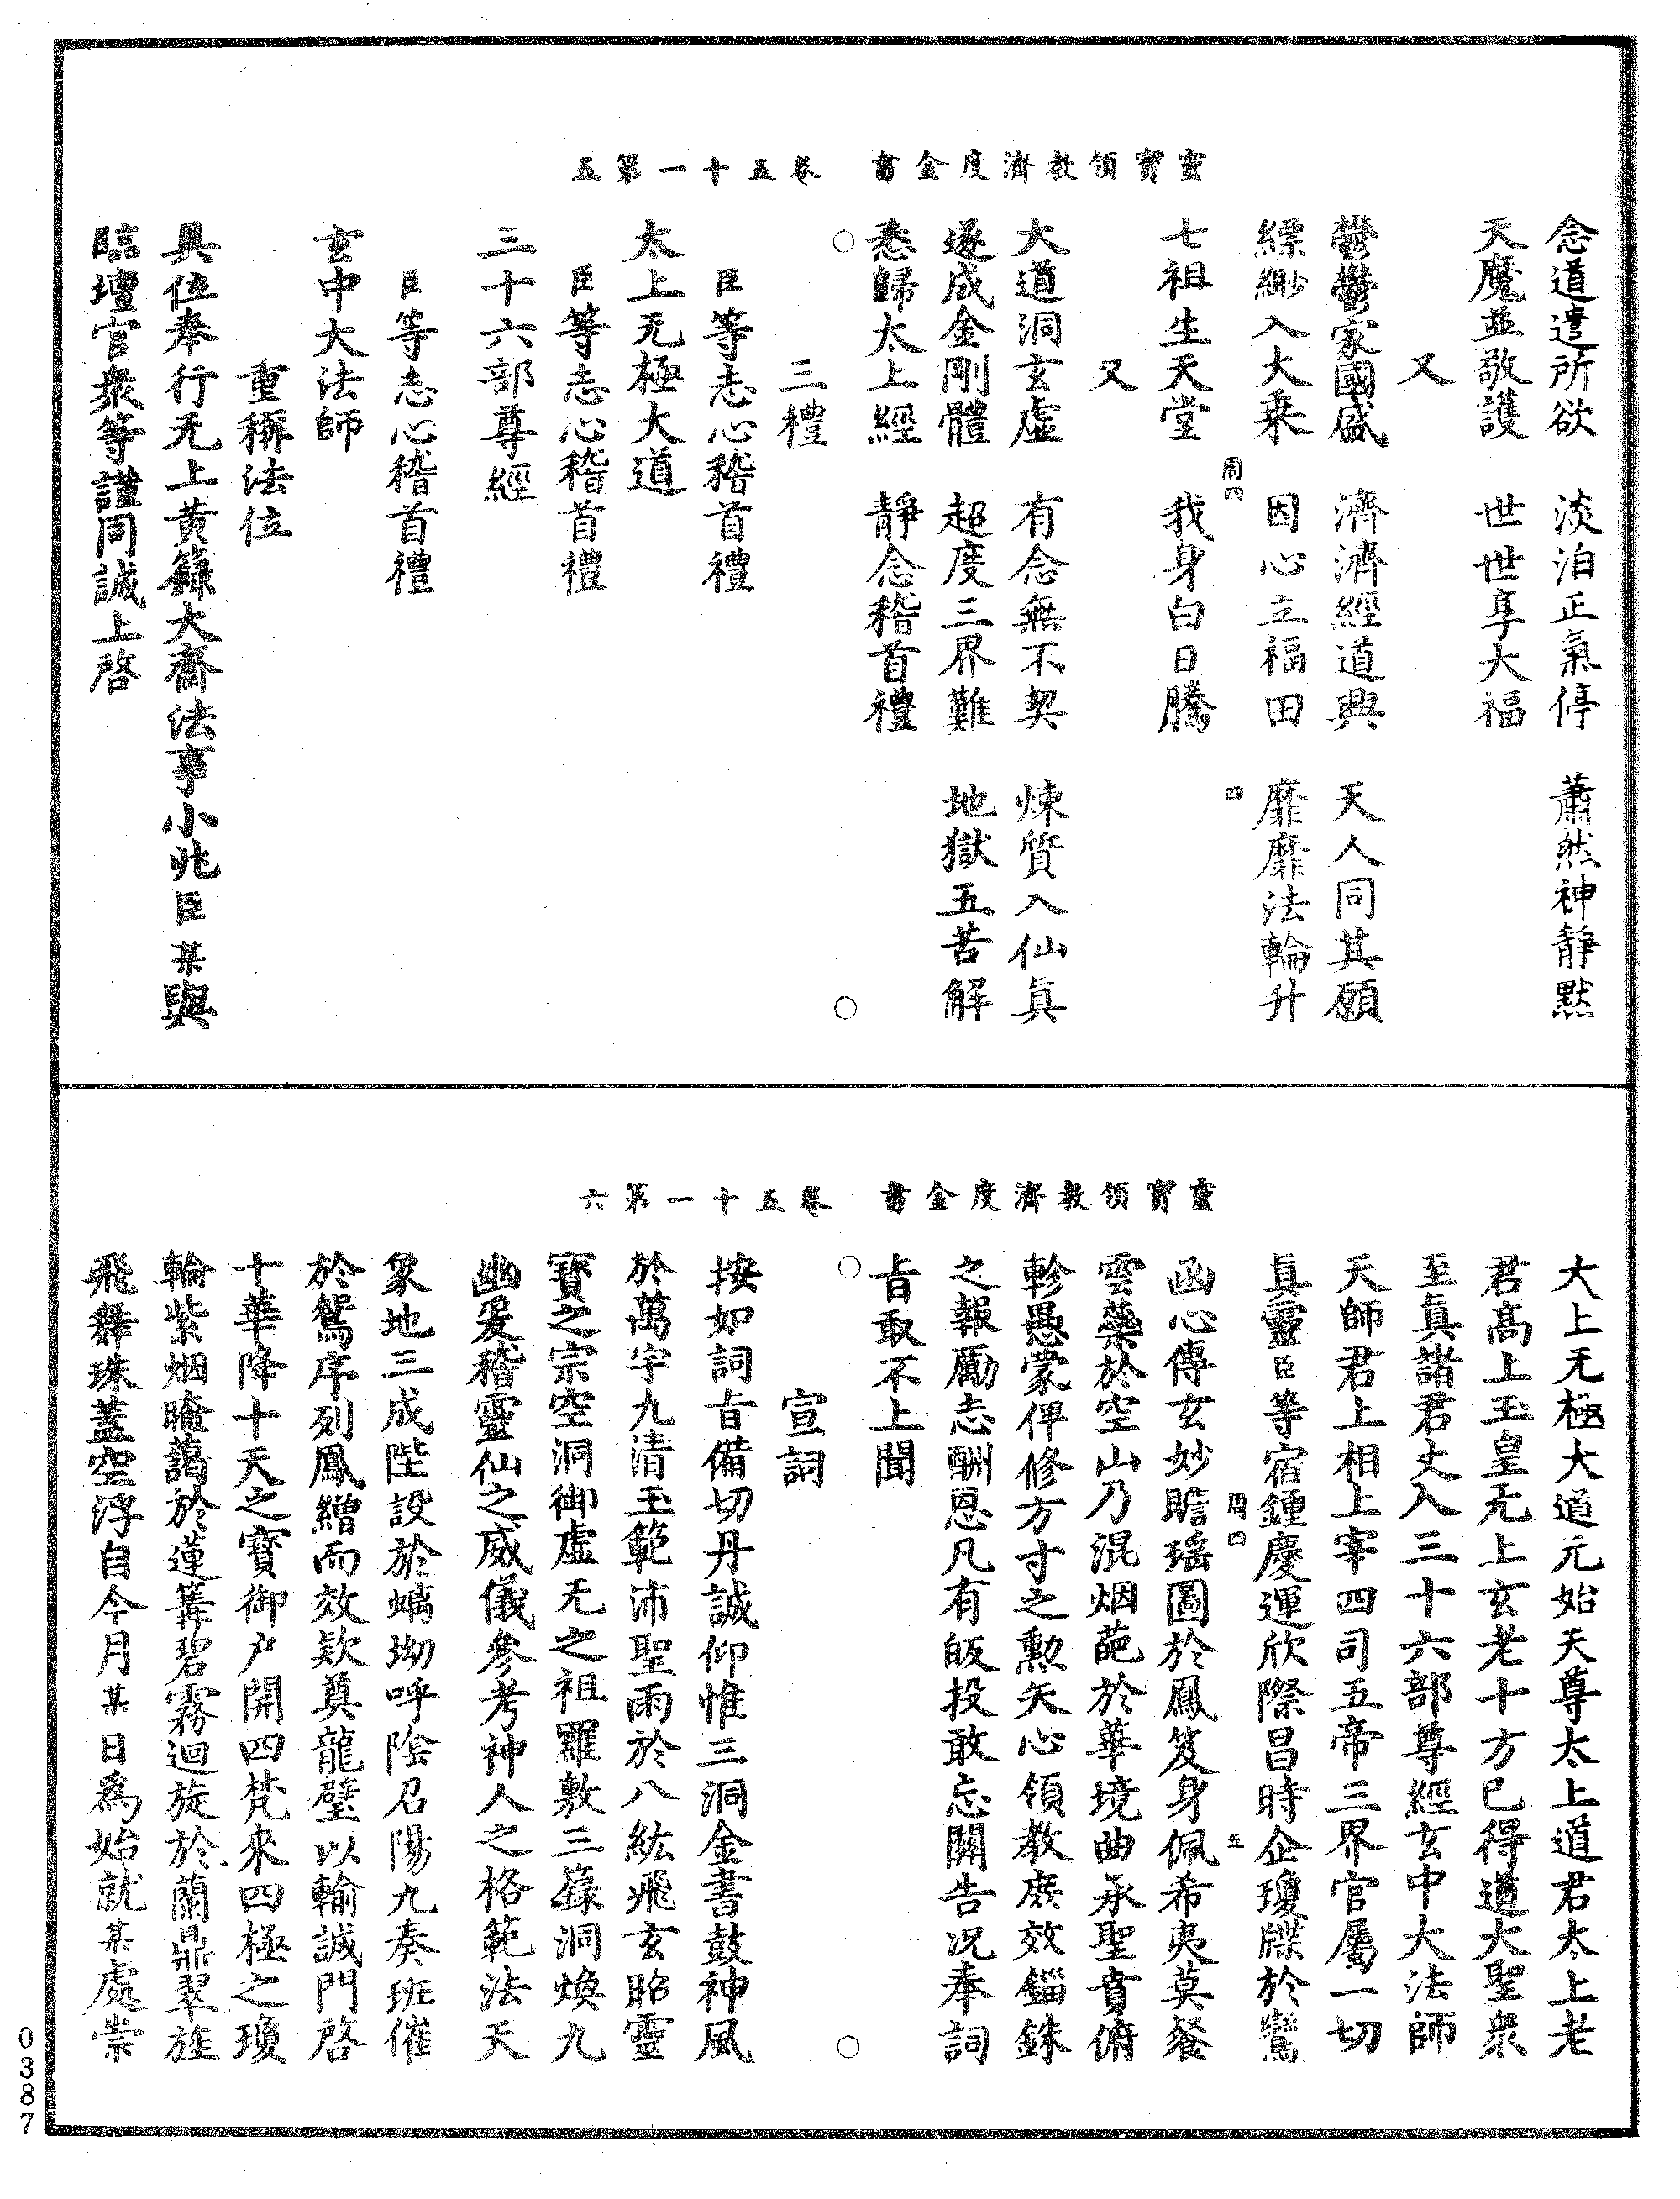 靈寶領教濟度金書　卷五十一第五
念道遣所欲　淡泊正氣停　蕭然神靜默
天魔並敬護　世世享大福
又
鬱鬱家國盛　濟濟經道興　天人同其願
縹緲入大乘　因心立福田　靡靡法輪升
周四　四
七祖生天堂　我身白日騰
又
大道洞玄虛　有念無不契　煉質入仙眞
遂成金剛體　超度三界難　地獄五苦解
悉歸太上經　靜念稽首禮
三禮
臣等志心稽首禮
太上无極大道
臣等志心稽首禮
三十六部尊經
臣等志心稽首禮
玄中大法師
重稱法位
具位奉行无上黃籙大齋法事小兆臣某與
臨壇官衆等謹同誠上啓
靈寶領教濟度金書　卷五十一第六
大上无極大道元始天尊太上道君太上老
君高上玉皇无上玄老十方已得道大聖衆
至眞諸君丈人三十六部尊經玄中大法師
天師君上相上宰四司五帝三界官屬一切
眞靈臣等宿鍾慶運欣際昌時企瓊牒於鸞
周四　五
函心傳玄妙瞻瑤圖於鳳笈身佩希夷莫餐
雲藥於空山乃混烟葩於華境曲承聖賁俯
軫愚蒙俾修方寸之勳矢心領教庶效錙銖
之報勵志酬恩凡有皈投敢忘關告况奉詞
旨敢不上聞
宣詞
按如詞旨備切丹誠仰惟三洞金書鼓神風
於萬宇九清玉範沛聖雨於八紘飛玄昭靈
寶之宗空洞御虛无之祖羅敷三籙洞煥九
幽爰稽靈仙之威儀參考神人之格範法天
象地三成陛設於螭坳呼陰召陽九奏班催
於鴛序列鳳繒而效欵奠龍璧以輸誠門啓
十華降十天之寶御戶開四梵來四極之瓊
輪紫烟晻藹於蓮篝碧霧迴旋於蘭鼎翠旌
飛舞珠蓋空浮自今月某日爲始就某處崇
0387